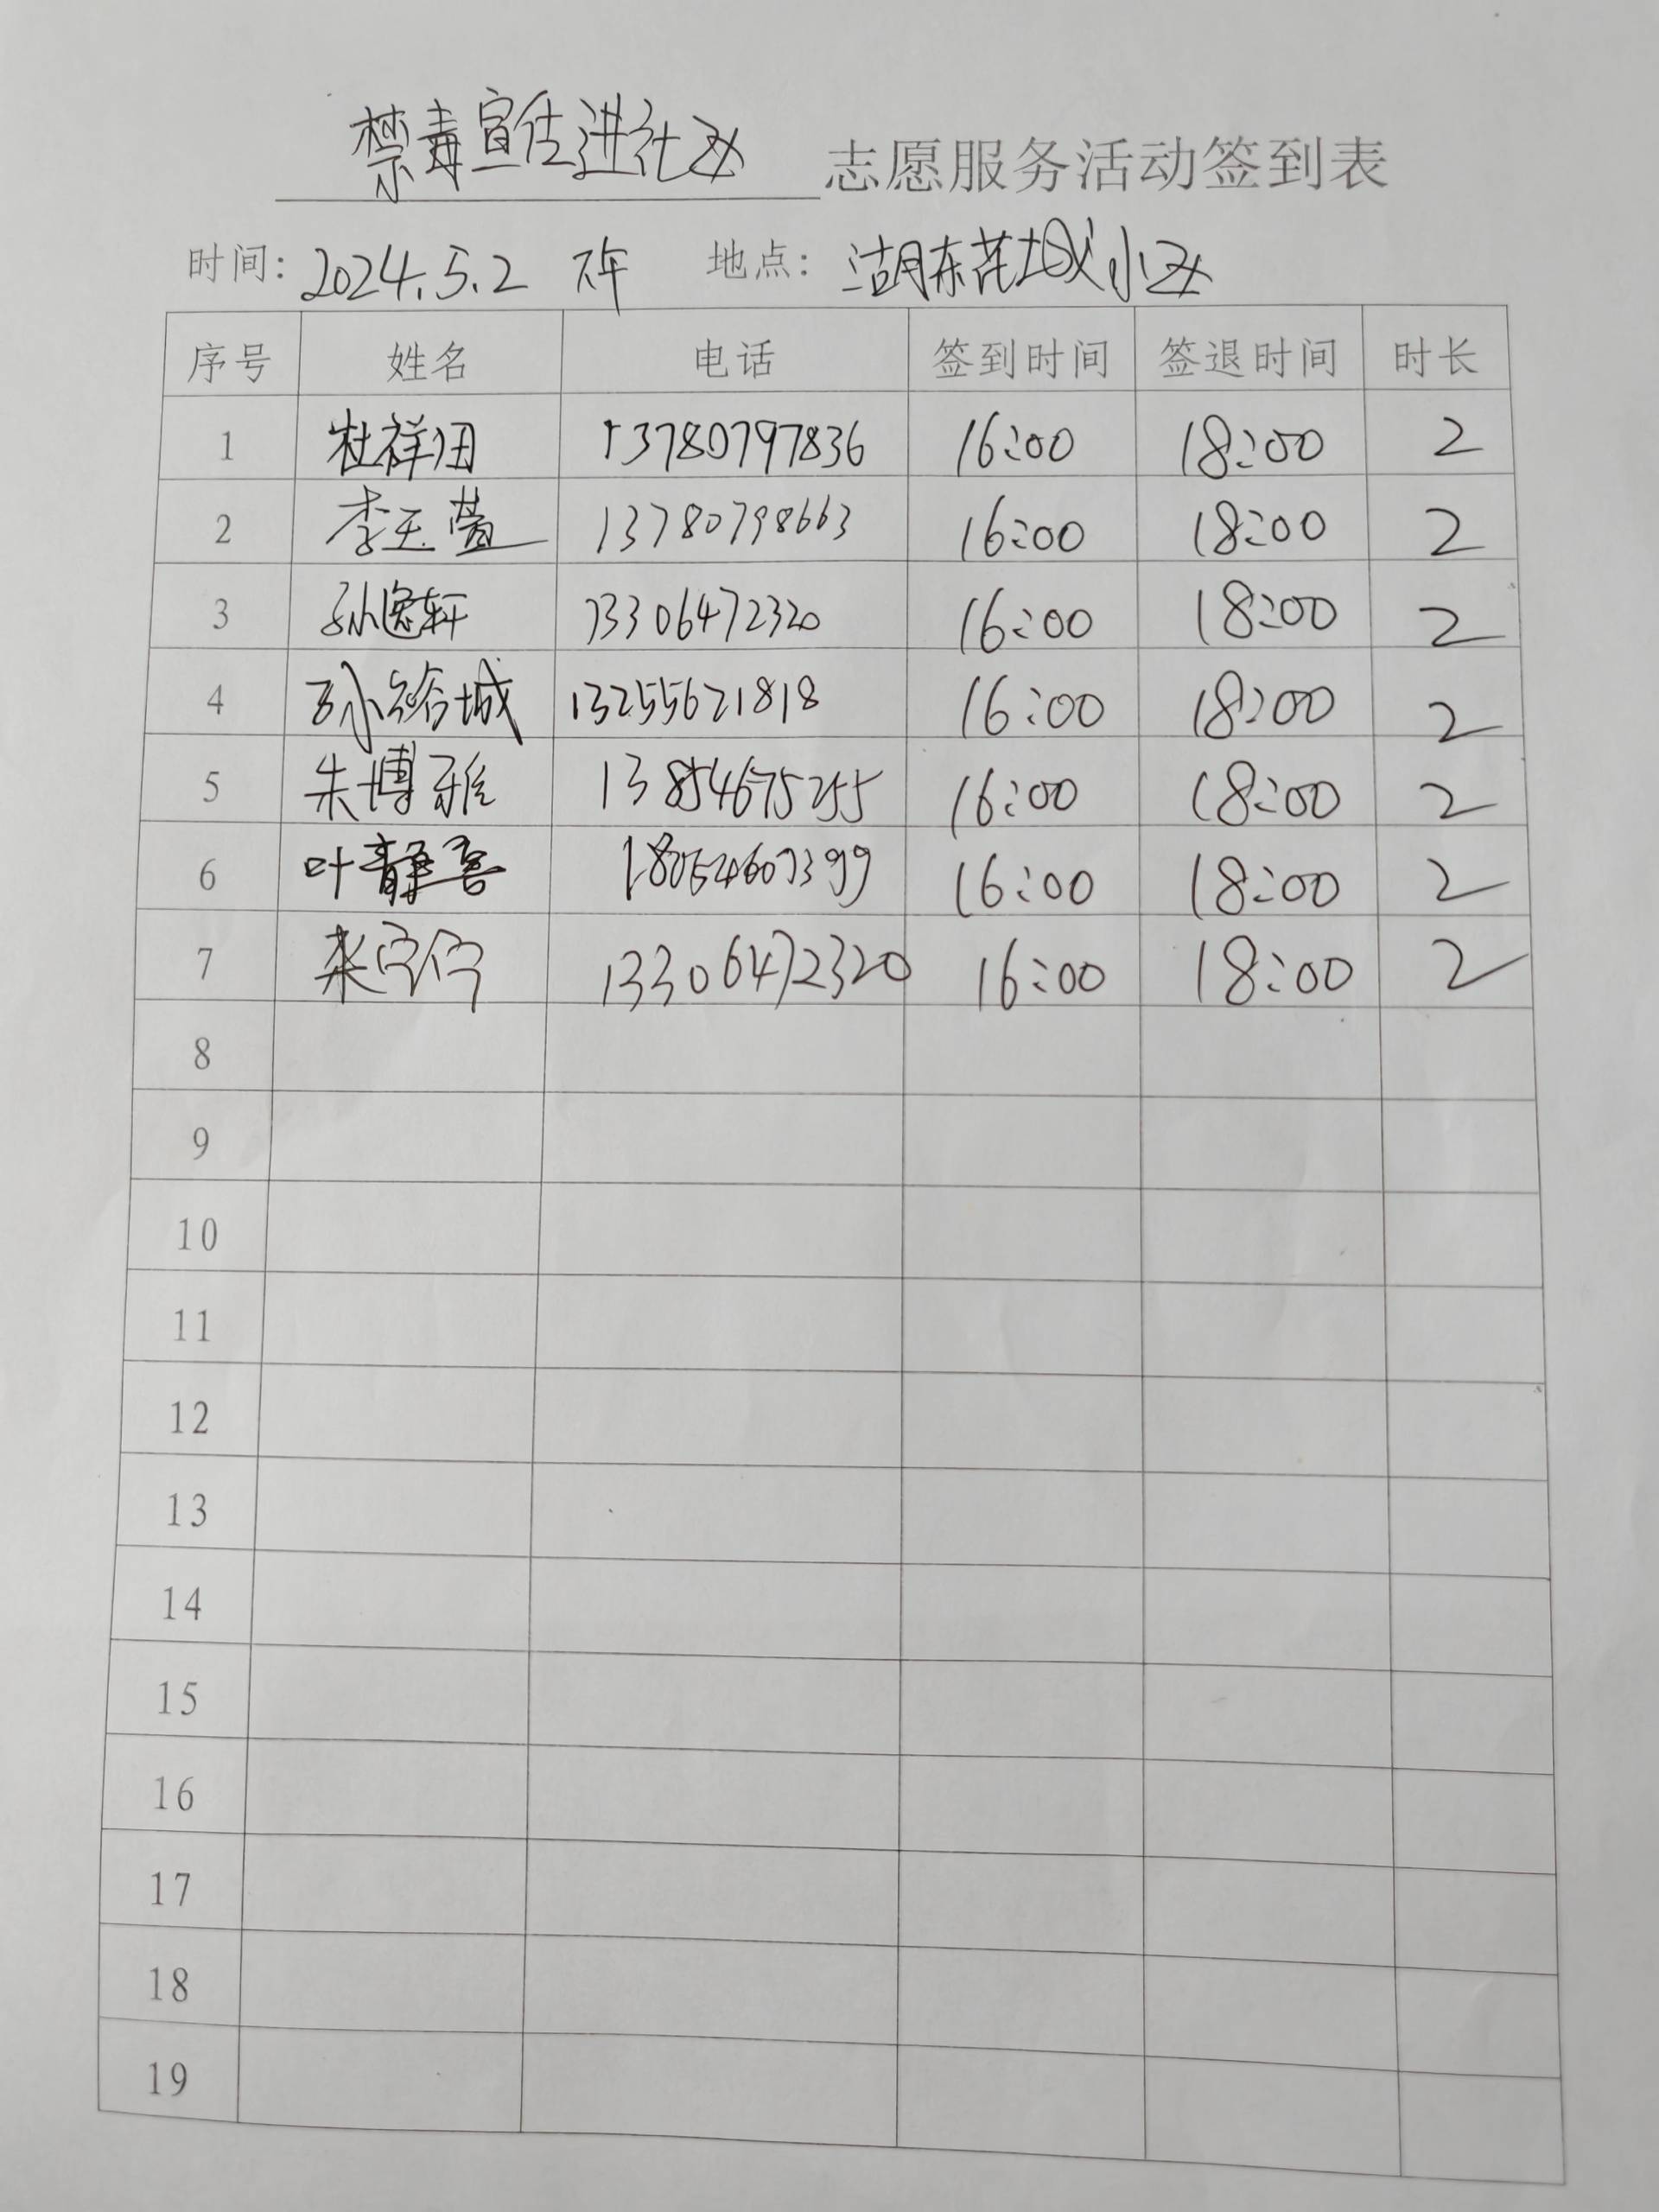 禁毒宣传进社区 志愿服务活动签到表
时间: 2024.5.2 下午 地点: 湖东花城小区
序号 姓名 电话 签到时间 签退时间 时长
1 杜祥田 13780797836 16:00 18:00 2
2 李玉萱 13780798663 16:00 18:00 2
3 孙逸轩 13306472320 16:00 18:00 2
4 孙裕城 13255621818 16:00 18:00 2
5 朱博雅 13854675255 16:00 18:00 2
6 叶静 18054607399 16:00 18:00 2
7 13306472320 16:00 18:00 2
8
9
10
11
12
13
14
15
16
17
18
19